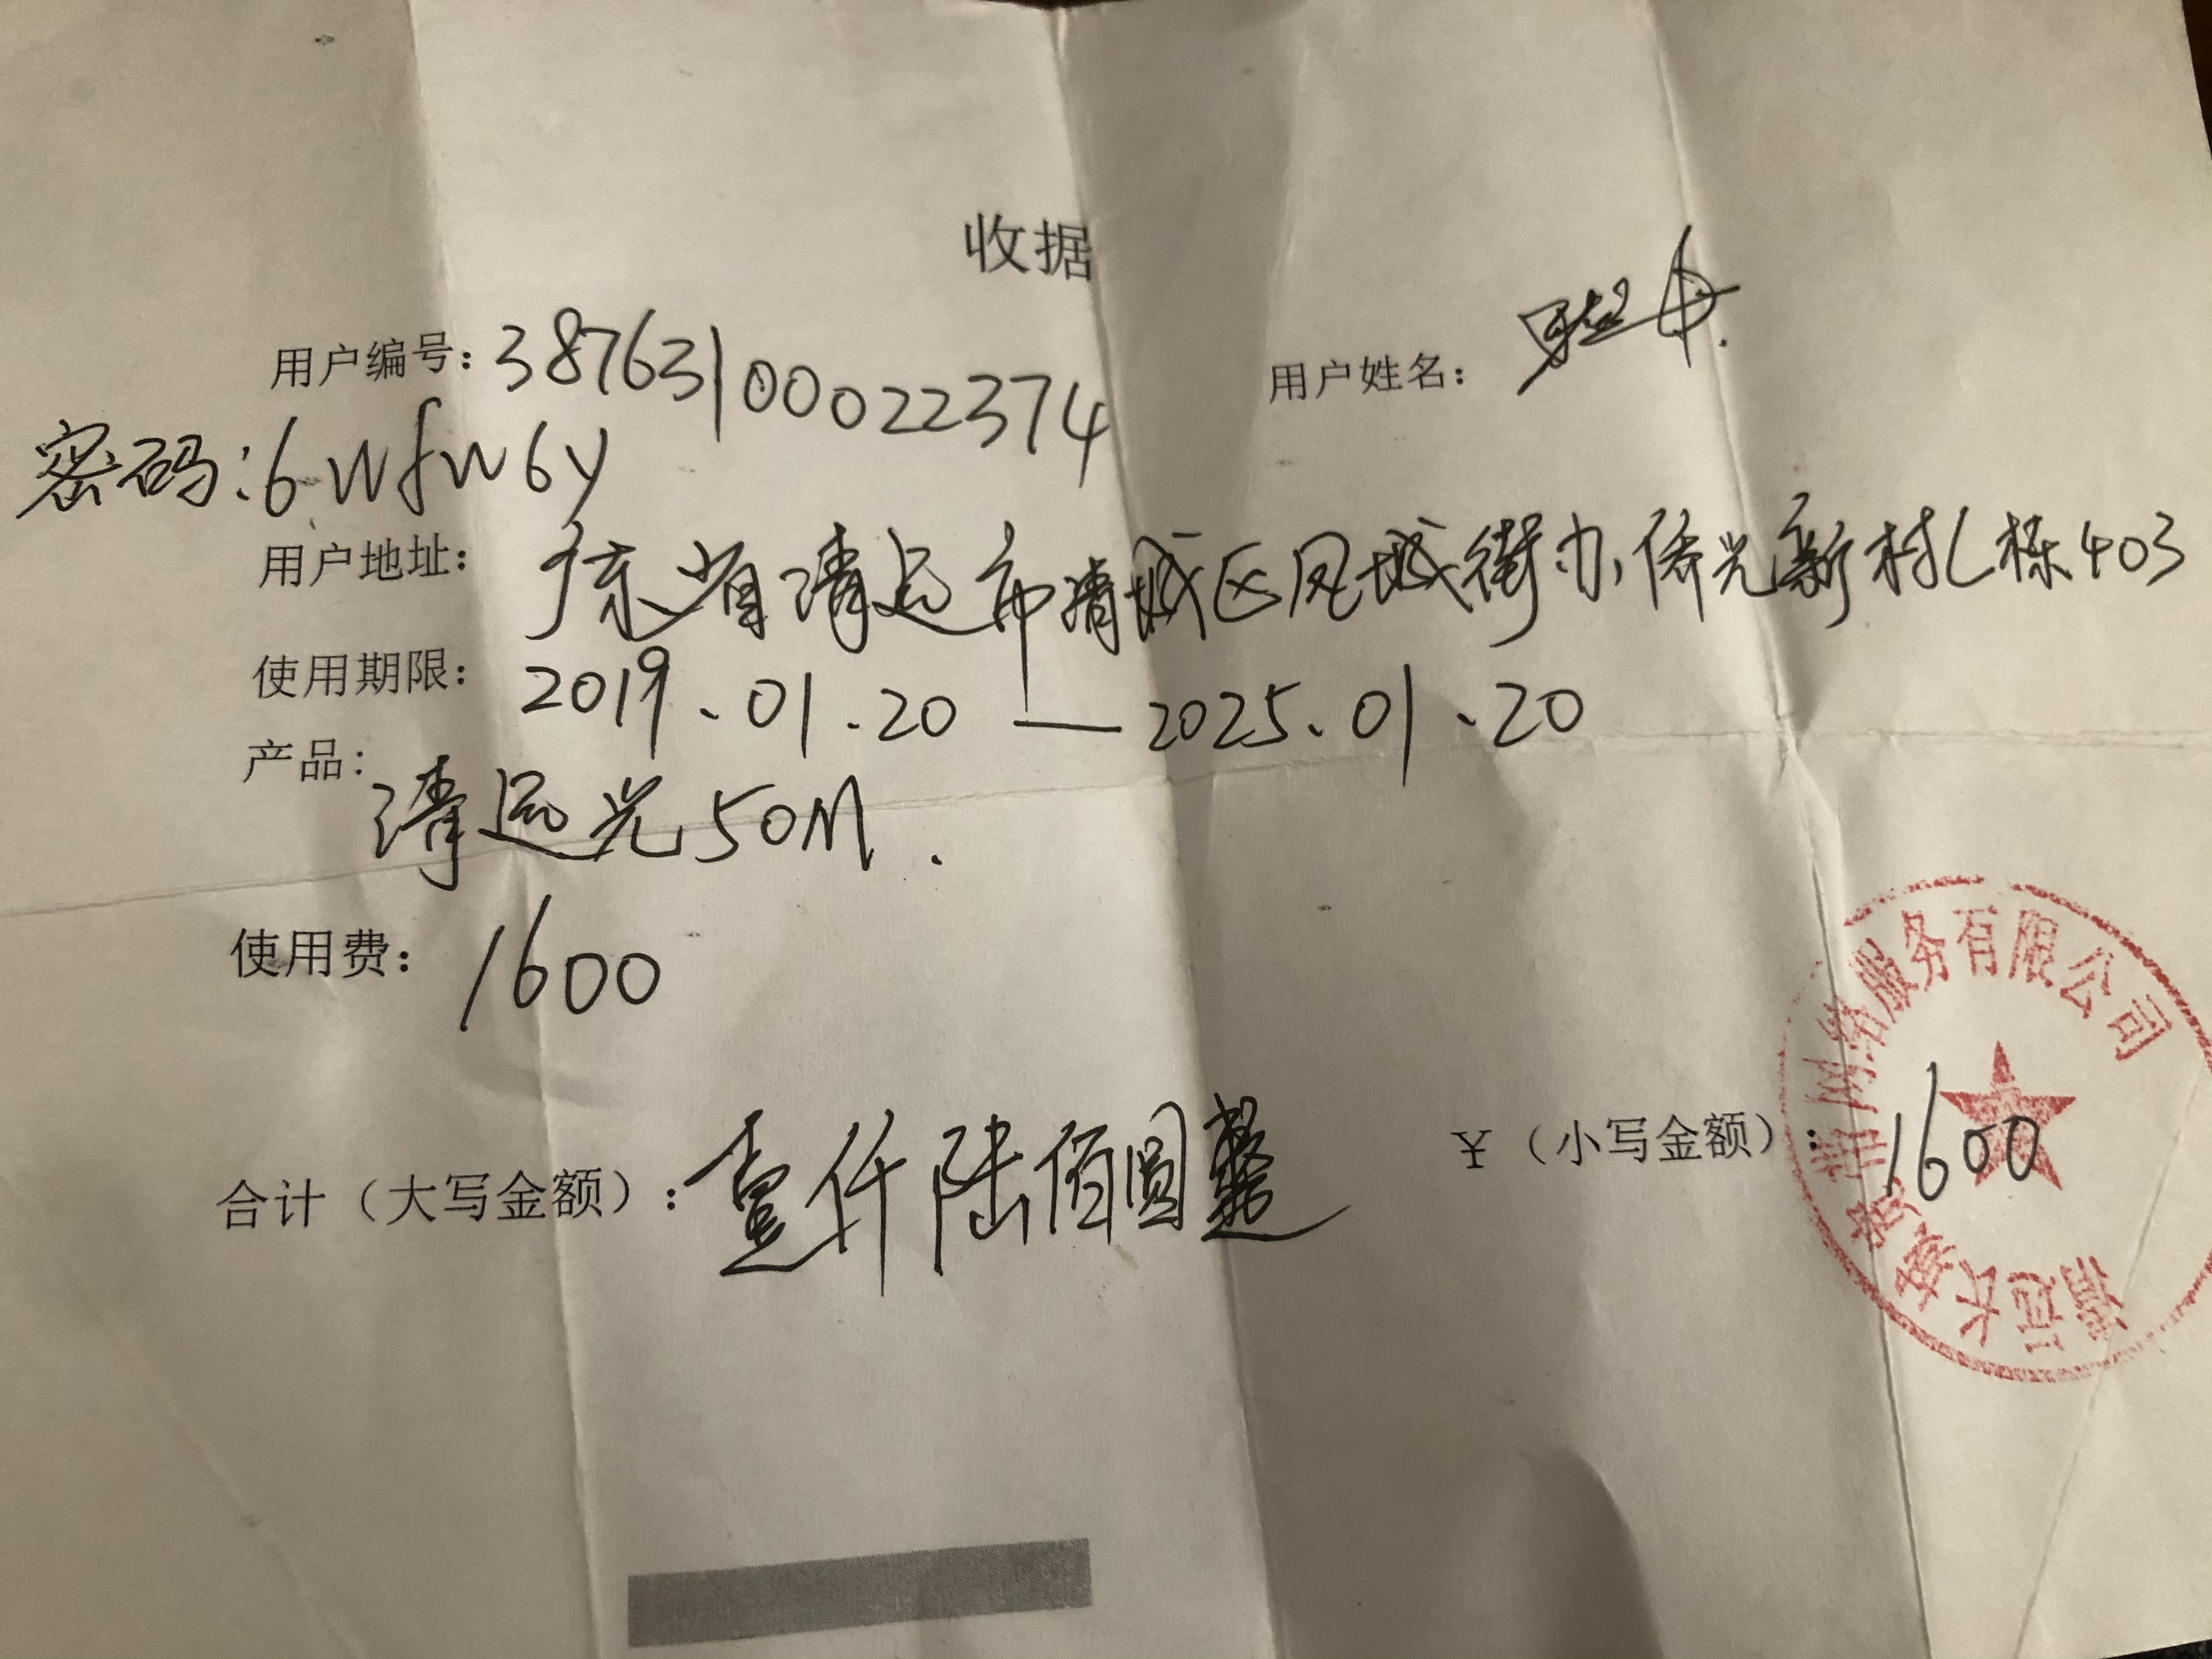 收据
用户编号：38763100022374
用户姓名：
密码：6wfw6y
用户地址：广东省清远市清城区凤城街办侨光新村L栋403
使用期限：2019.01.20—2025.01.20
产品：清远光50M.
使用费：1600
合计（大写金额）：壹仟陆佰圆整
¥（小写金额）：1600
清远长 网络服务有限公司